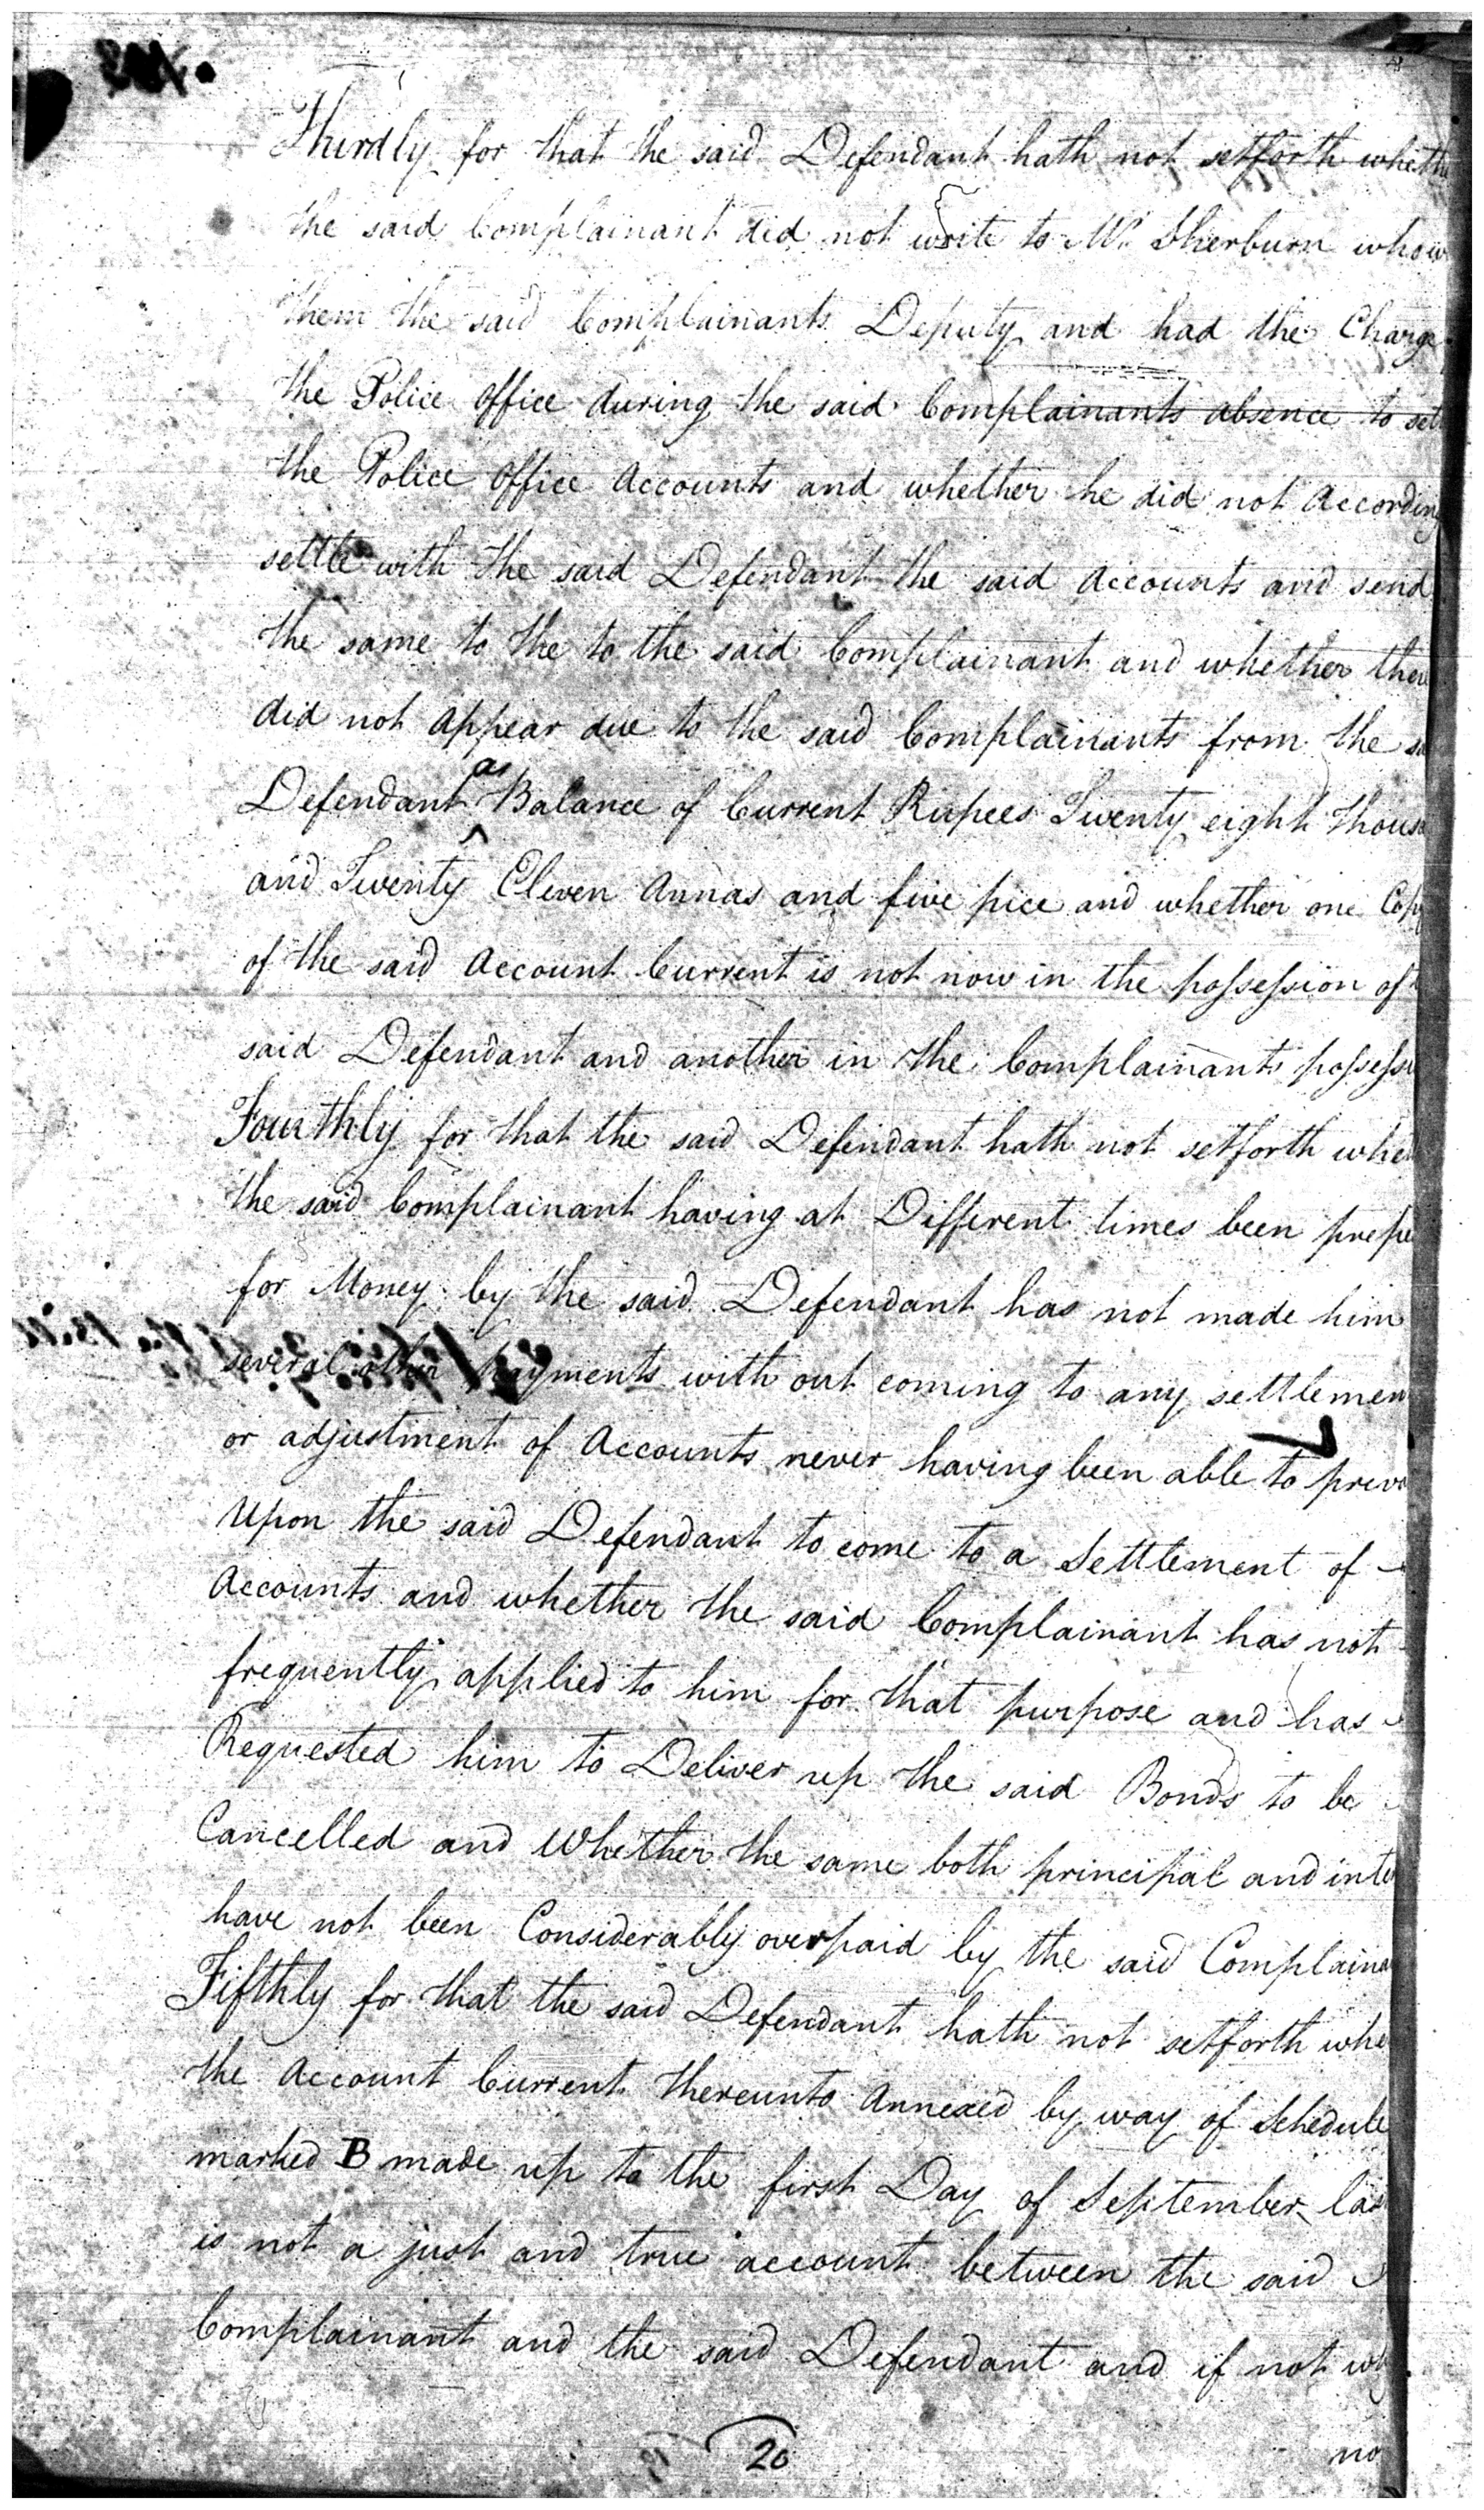 Thirdly for that the said Defendant hath not setforth wheth
the said Complainant did not write to Mr. Sherburn who w
them the said Complainants Deputy and had the Charge
the Police Office during the said Complainants absence to set
the Police Office Accounts and whether he did not According
settle with the said Defendant the said Accounts and send
the same to the to the said Complainant and whether ther
did not appear due to the said Complainants from the sa
Defendant as Balance of Current Rupees Twenty eight thous
and Twenty Eleven Annas and five pice and whether one Cop
of the said Account Current is not now in the possession of
said Defendant and another in the Complainants possessi
Fourthly for that the said Defendant hath not setforth whe
the said Complainant having at Different times been
for Money by the said Defendant has not made him
several other payments with out coming to any settlemen
or adjustment of Accounts never having been able to prev
Upon the said Defendant to come to a Settlement of
Accounts and whether the said Complainant has not
frequently applied to him for that purpose and has
Requested him to Deliver up the said Bonds to be
Cancelled and Whether the same both principal and inte
have not been Considerably overpaid by the said Complaina
Fifthly for that the said Defendant hath not setforth whe
the Account Current thereunto Annexed by way of Schedule
marked B made up to the first Day of September las
is not a just and true account between the said
Complainant and the said Defendant and if not why
20
no